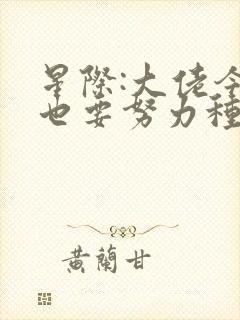 星際:大佬今
也要努力種
黃蘭甘